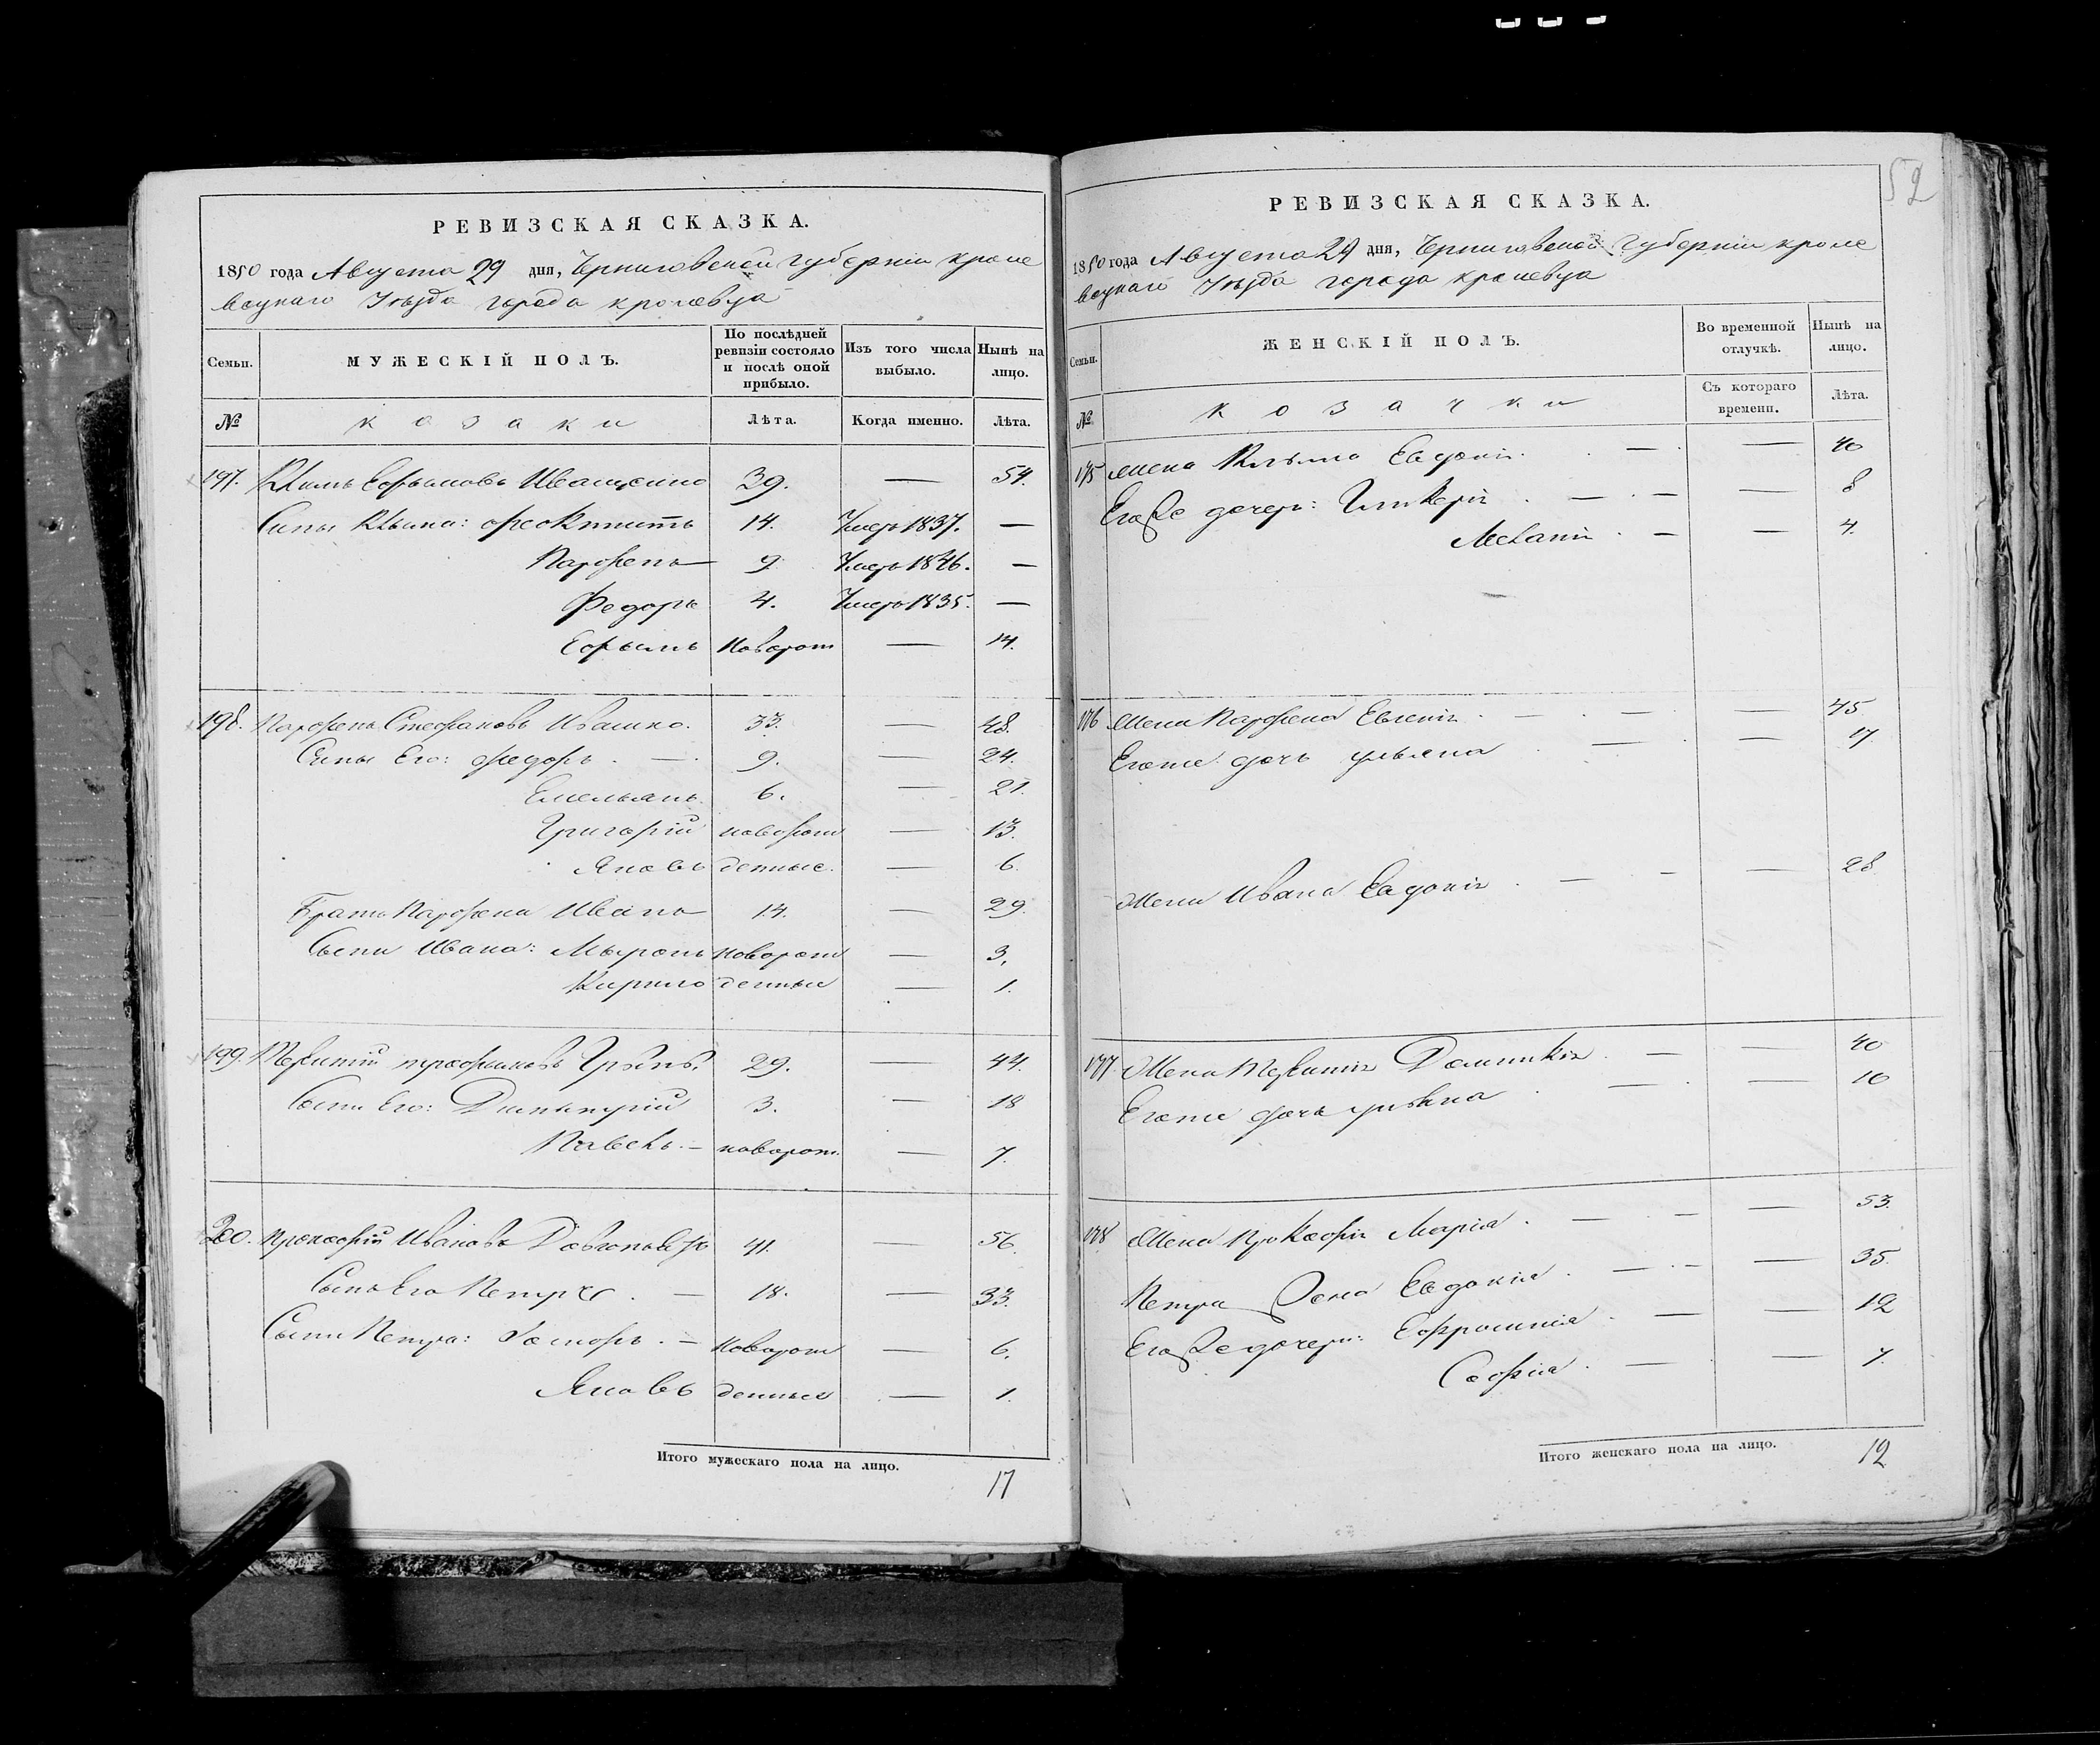 РЕВИЗСКАЯ СКАЗКА.
1850 года Августа 29 дня, Черниговской Губерніи кроле
вецкаго Уѣзда города кролевца
Семьи. МУЖЕСКІЙ ПОЛЪ. По послѣдней ревизіи состояло и послѣ оной прибыло. Изъ того числа выбыло. Нынѣ на лицо.
№ козаки Лѣта. Когда именно. Лѣта.
197. Климъ Ефимовъ Иващенко 39. — 54.
Сыны Клима: Феоктистъ 14. Умеръ 1837. —
Парфенъ 9 Умеръ 1846. —
Федоръ 4. Умеръ 1835. —
Ефимъ новорож — 14.
198. Парфенъ Стефановъ Ивашко. 33. — 48.
Сыны Его: Федоръ. — 9. — 24.
Емельянъ. 6. — 21.
Григорій новорож — 13.
Яковъ денные. — 6
Братъ Парфена Иванъ 14. — 29.
Сыны Ивана: Мыронъ новорож — 3.
Кирило денныи — 1.
199. 29. — 44.
Сыны Его: Дмитрій 3. — 18
Павелъ. — новорож. — 7.
200. Прокофій Ивановъ 41. — 56.
Сынъ Его Петръ. — 18. — 33.
Сыны Петра: — новорож — 6.
Яковъ денные — 1.
Итого мужескаго пола на лицо.
17
52
РЕВИЗСКАЯ СКАЗКА.
1850 года Августа 29 дня, Черниговской Губерніи кроле
вецкаго Уѣзда города кролевца
Семьи. ЖЕНСКІЙ ПОЛЪ. Во временной отлучкѣ. Нынѣ на лицо.
№ козачки Съ котораго времени. Лѣта.
175 жена Клима Евдокія. — — 40
Его же дочери: Гликерія. — — — 8
Меланія. — — 4.
176 Жена Парфена Евгенія. — — — 45.
Его же дочь ульяна — — 17.
Жена Ивана Евдокія. — — — 28
177 Жена — — 40
Его же дочь ульяна — — 10
178 Жена Прокофія Марія. — — — 53.
Петра жена Евдокія. — — — 35.
Его же дочери: Ефросинія. — — 12
Софія. — — 7.
Итого женскаго пола на лицо.
12